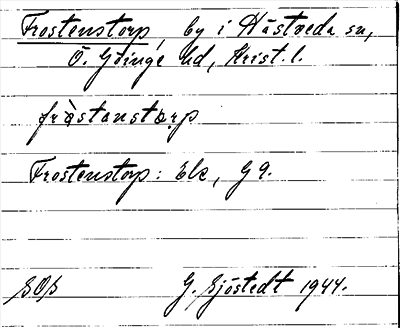 Frostenstorp, by i Hästveda sn,
Ö. Göinge hd, Krist. l.
fràstanstɔrp
Frostenstorp: Ek, G 9.
SOB G. Sjöstedt 1944.